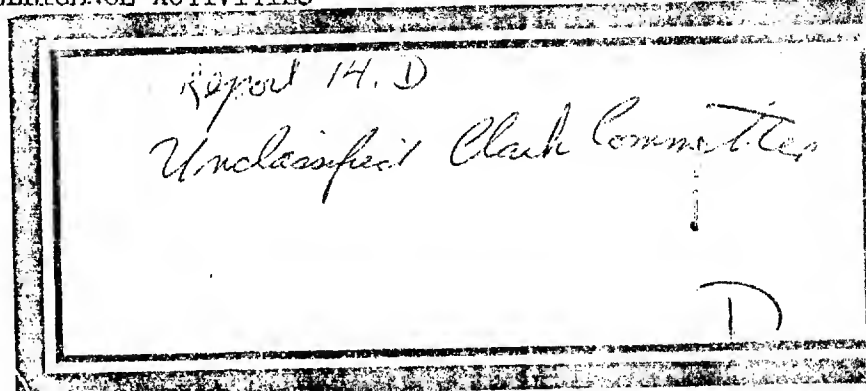 ACTIVITIES
Report 14. D
Unclassified Clark Committee
D